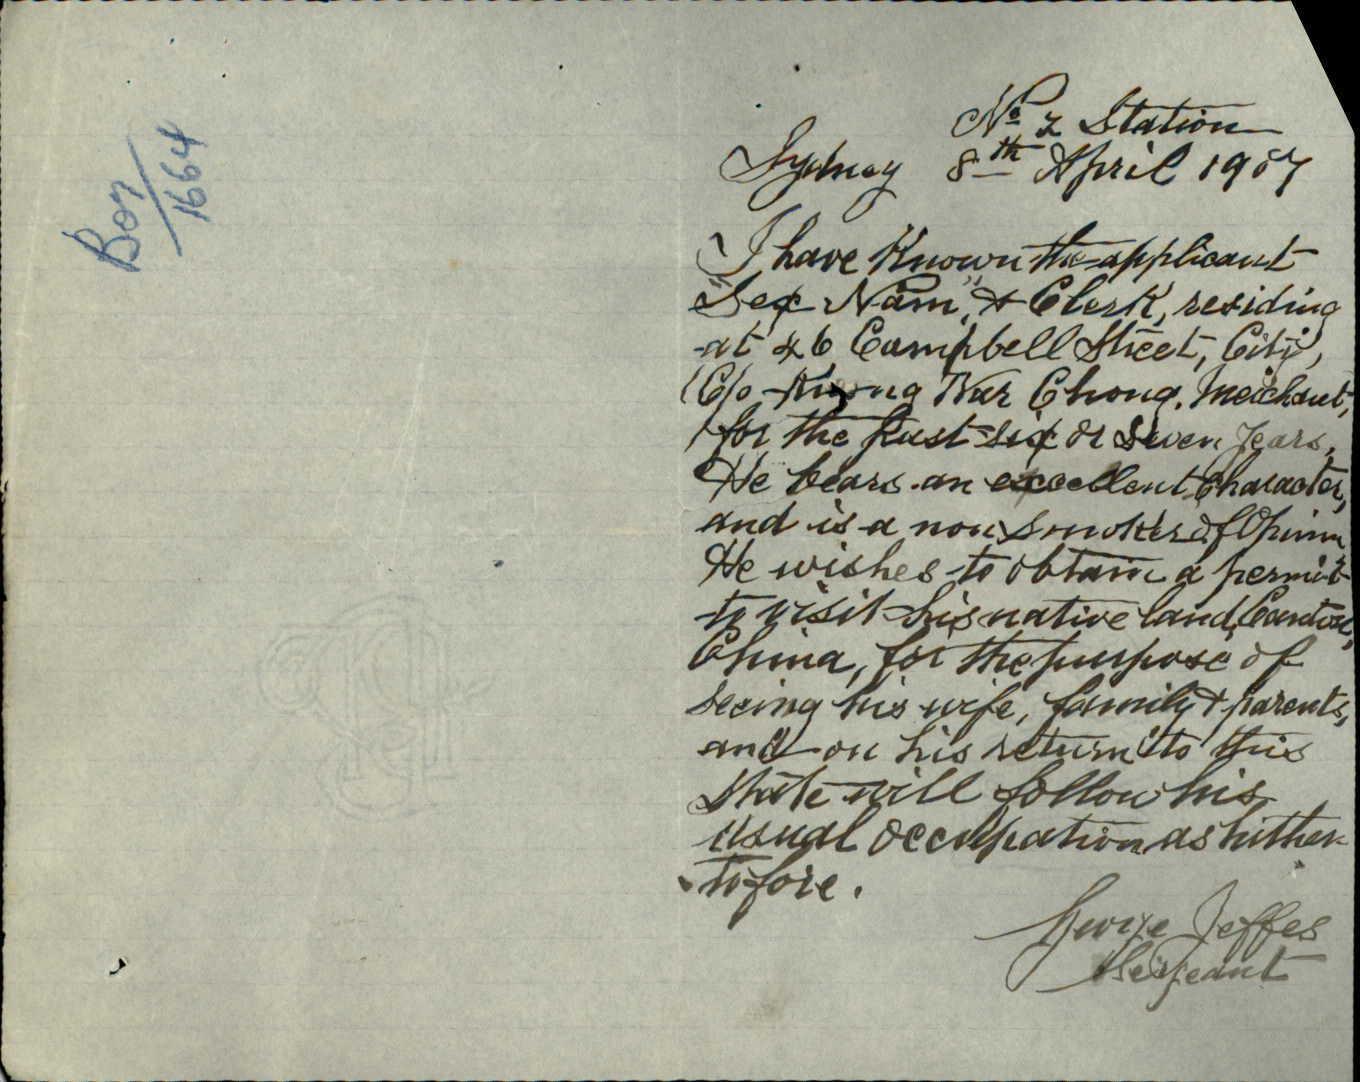 B07/1664
No 2 Station
Sydney 8th April 1907
I have Known the applicant
"See Nam", a Clerk, residing
at 46 Campbell Street, City,
C/o Kwong War Chong, Merchant,
for the past six or seven years,
He bears an excellent Character,
and is a non smoker of Opium
He wishes to obtain a permit
to visit his native land, Canton,
China, for the purpose of
seeing his wife, family & parents,
and on his return to this
State will follow his
usual occupation as hither
tofore.
George Jeffes
Sergeant